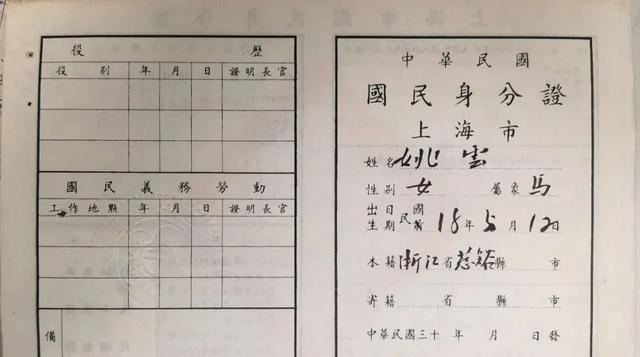 役 歷
役別 年 月 日 證明長官
國民義務勞動
工作地點 年 月 日 證明長官
備
中華民國
國民身分證
上海市
姓名 姚雲
性別 女 屬象 馬
出生日期 民國前 18年5月12日
本籍 浙江省慈谿縣市
寄籍 省縣市
中華民國三十 年 月 日發